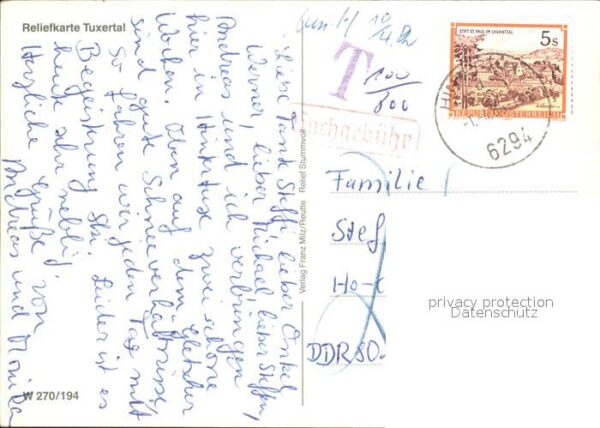 Reliefkarte Tuxertal
Liebe Tante Steffi, lieber Onkel
Werner, lieber Michael, lieber Steffen,
Andreas und ich verbringen
hier in Hintertux zwei schöne
Wochen. Oben auf dem Gletscher
sind gute Schneeverhältnisse,
so fahren wir jeden Tag mit
Begeisterung Ski. Leider ist es
heute sehr neblig.
Herzliche Grüße von
Andreas und Monika
W 270/194
Verlag Franz Milz/Reutte Relief Stummvoll
T
100
800
STIFT ST. PAUL IM LAVANTTAL
5 s
REPUBLIK ÖSTERREICH
6294
Familie
Stef
Ho
DDR 80
privacy protection
Datenschutz